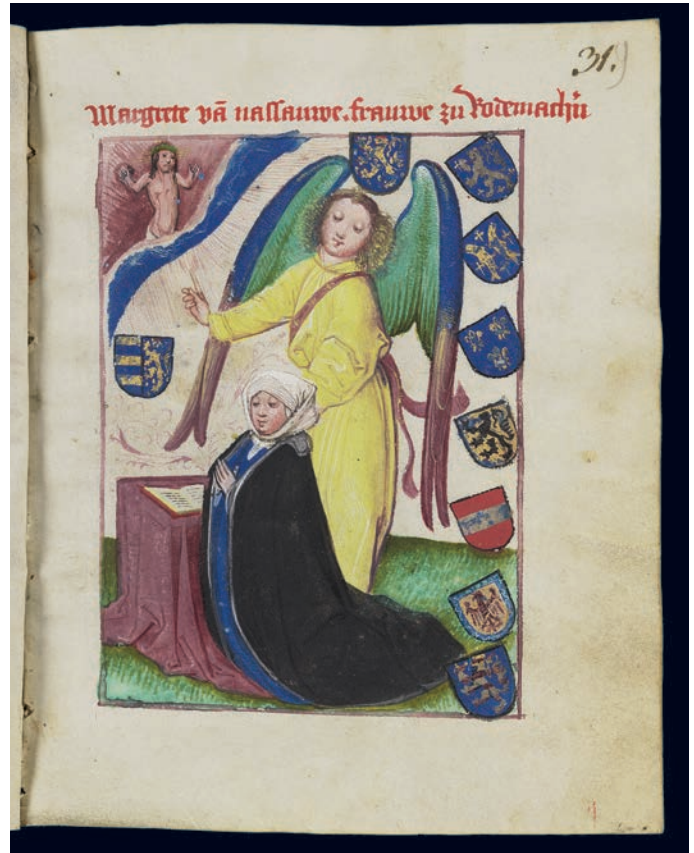 31.)
Margrete vā nassauwe. frauwe zu Rodemachn̄